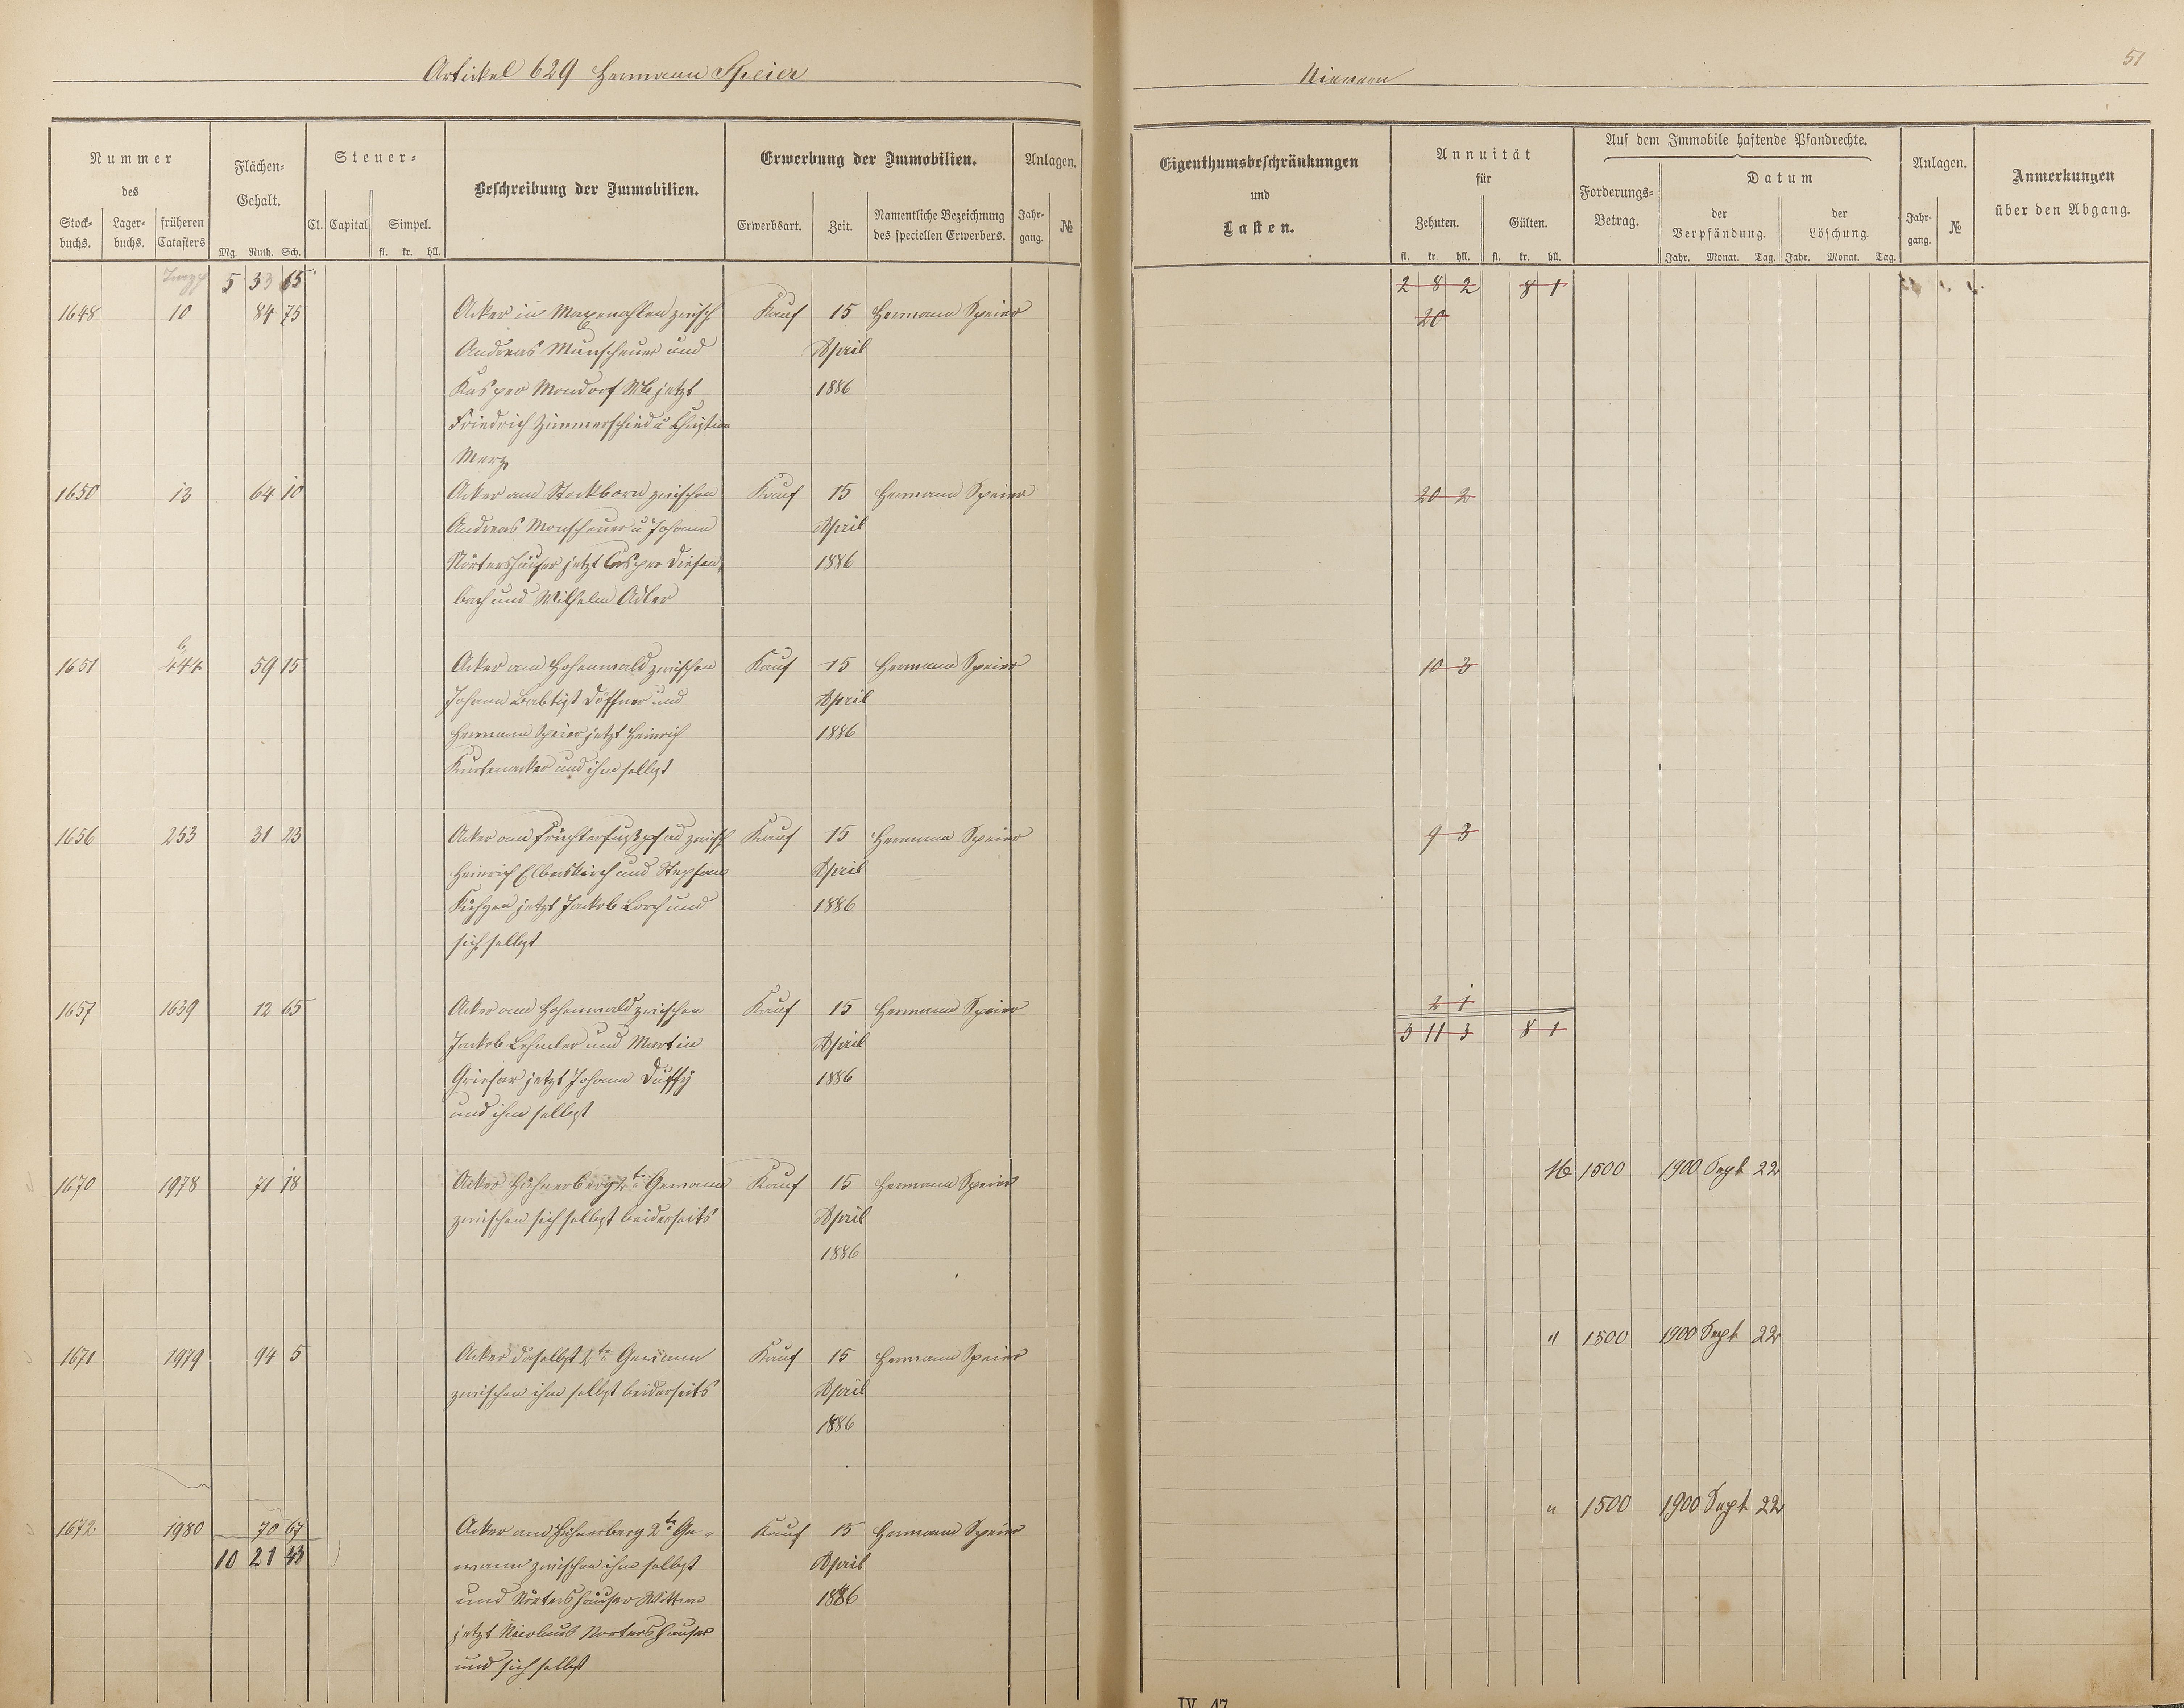 Artikel 629 Hermann Speier
Nievern
51
Nummer
des
Stock-
buchs.
Lager-
buchs.
früheren
Catasters
Flächen-
Gehalt.
Mg. Ruth. Sch.
Steuer-
Cl. Capital Simpel.
fl. kr. hll.
Beschreibung der Immobilien.
Erwerbung der Immobilien.
Erwerbsart. Zeit.
Namentliche Bezeichnung
des speciellen Erwerbers.
Anlagen.
Jahr-
gang.
№
Eigenthumsbeschränkungen
und
Lasten.
Annuität
für
Zehnten. Gülten.
fl. kr. hll. fl. kr. hll.
Auf dem Immobile haftende Pfandrechte.
Forderungs-
Betrag.
Datum
der
Verpfändung.
der
Löschung.
Jahr. Monat. Tag. Jahr. Monat. Tag.
Anlagen.
Jahr-
gang.
№
Anmerkungen
über den Abgang.
5 33 65 2 8 2 8 1
1648 10 84 75 Acker in Maxenahlen zwisch Kauf 15 Hermann Speier 20
Andreas Munscheuer und April
Kasper Mondorf Wb jetzt 1886
Friedrich Zimmerschied u Christian
Merz
1650 13 64 10 Acker am Stockborn zwischen Kauf 15 Hermann Speier 20 2
Andreas Monscheuer u Johann April
Nörtershäuser jetzt Casper Diefen- 1886
bach und Wilhelm Adler
1651 444 59 15 Acker am Hohenwald zwischen Kauf 15 Hermann Speier 10 3
Johann Babtist Döffner und April
Hermann Speier jetzt Heinrich 1886
Kurtenacker und ihm selbst
1656 253 31 23 Acker am Früchterfußpfad zwisch Kauf 15 Hermann Speier 9 3
Heinrich Elberskirch und Stephan April
jetzt Jackob Lorch und 1886
sich selbst
1657 1639 12 65 Acker am Hohenwald zwischen Kauf 15 Hermann Speier 2 1
Jackob Lehmler und Martin April 3 11 3 8 1
Griesar jetzt Johann Duffy 1886
und ihm selbst
1670 1978 71 18 Acker Hühnerberg 2te Gewann Kauf 15 Hermann Speier M 1500 1900 Sept 22
zwischen sich selbst beiderseits April
1886
1671 1979 94 5 Acker daselbst 2te Gewann Kauf 15 Hermann Speier " 1500 1900 Sept 22
zwischen ihm selbst beiderseits April
1886
1672 1980 70 67 Acker am Hühnerberg 2te Ge- Kauf 15 Hermann Speier " 1500 1900 Sept 22
10 21 43 wann zwischen ihm selbst April
und Nörtershäuser Wittwe 1886
jetzt Nicolaus Nortershauser
und sich selbst
IV. 47